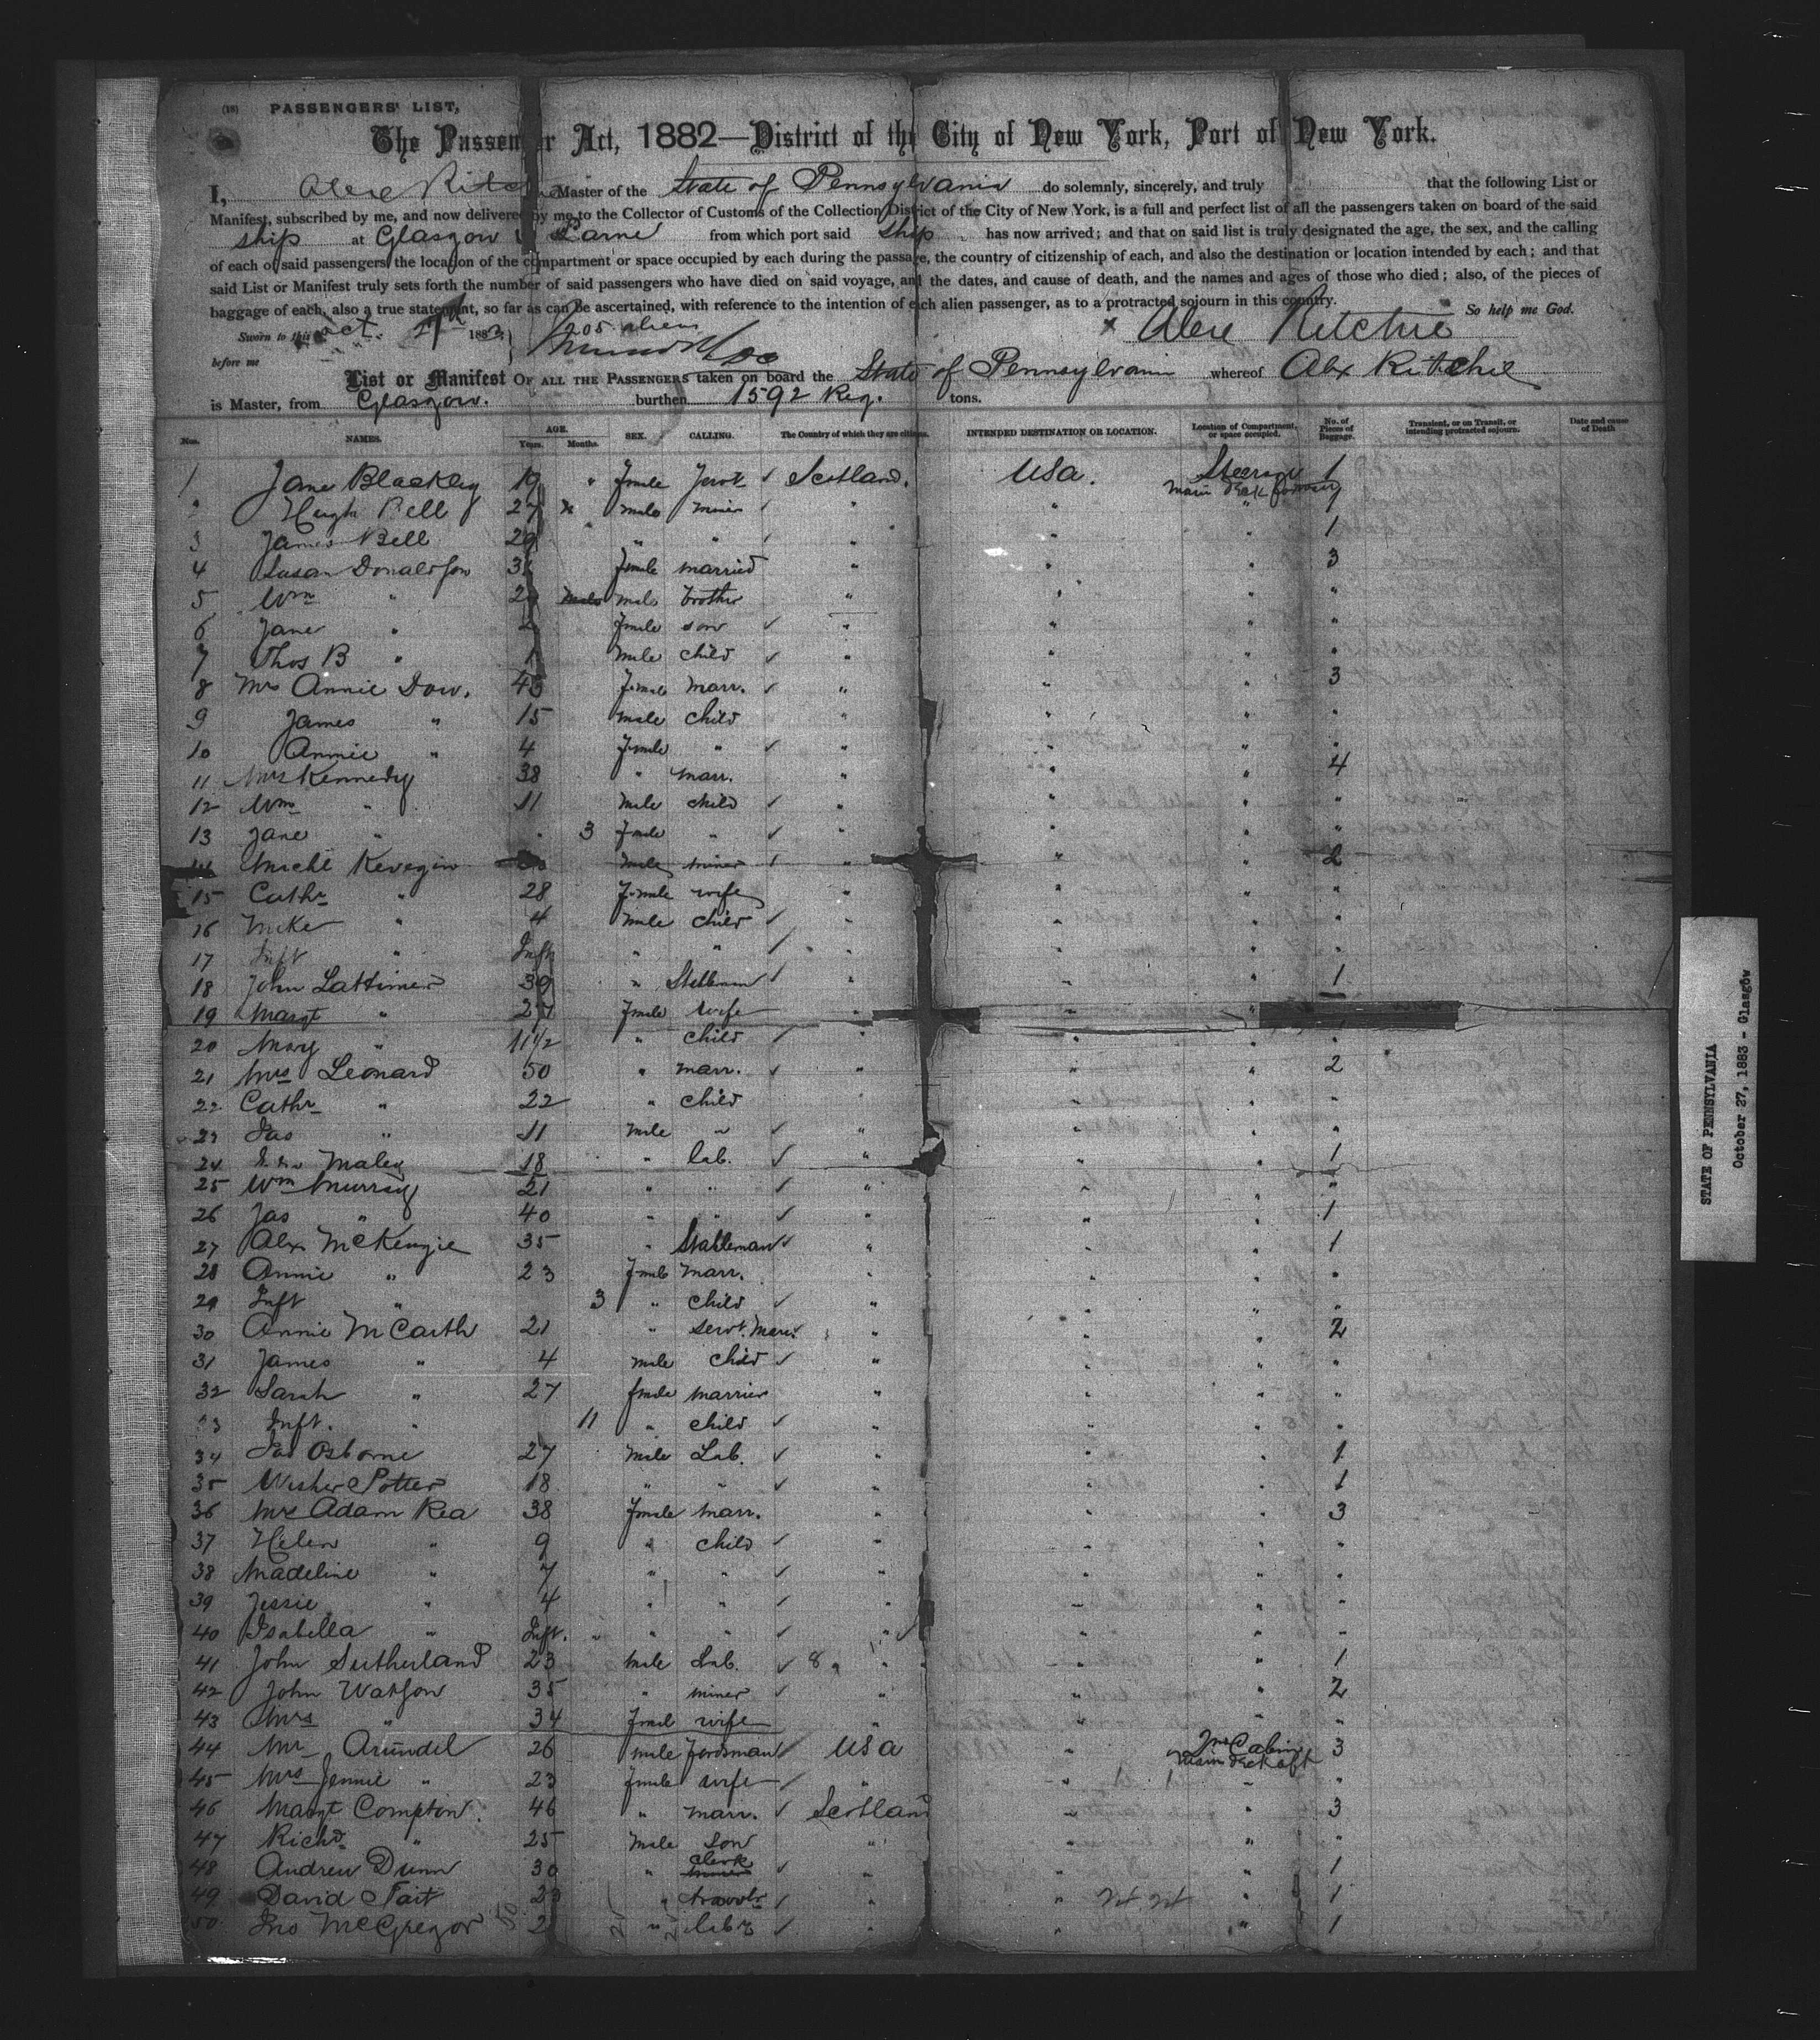 (18) PASSENGERS' LIST,
The Passenger Act, 1882—District of the City of New York, Port of New York.
I, Alex Ritchie Master of the State of Pennsylvania do solemnly, sincerely, and truly that the following List or
Manifest, subscribed by me, and now delivered by me to the Collector of Customs of the Collection District of the City of New York, is a full and perfect list of all the passengers taken on board of the said
ship at Glasgow & Larne from which port said ship has now arrived; and that on said list is truly designated the age, the sex, and the calling
of each of said passengers, the location of the compartment or space occupied by each during the passage, the country of citizenship of each, and also the destination or location intended by each; and that
said List or Manifest truly sets forth the number of said passengers who have died on said voyage, and the dates, and cause of death, and the names and ages of those who died; also, of the pieces of
baggage of each, also a true statement, so far as can be ascertained, with reference to the intention of each alien passenger, as to a protracted sojourn in this country. So help me God.
Sworn to this Oct. 27 1883 205 aliens x Alex Ritchie
before me
List or Manifest OF ALL THE PASSENGERS taken on board the State of Pennsylvania whereof Alex Ritchie
is Master, from Glasgow. burthen 1592 Reg. tons.
Nos. NAMES. AGE. Years. Months. SEX. CALLING. The Country of which they are citizens. INTENDED DESTINATION OR LOCATION. Location of Compartment, or space occupied. No. of Pieces of Baggage. Transient, or on Transit, or intending protracted sojourn. Date and cause of Death
1 Jane Blackley 19 " female Servt ✓ Scotland. USA. Steerage 1
Main Deck forward
2 Hugh Bell 27 male miner ✓ " " " 1
3 James Bell 29 " " ✓ " " " 1
4 Susan Donaldson female married " " " 3
5 Wm " male brother " " " "
6 Jane " female son ✓ " " " "
7 Thos B " male child ✓ " " " "
8 Mrs Annie Dow. 45 female marr. ✓ " " " 3
9 James " 15 male child " " " "
10 Annie " 4 female " ✓ " " " "
11 Mrs Kennedy 38 " marr. " " " 4
12 Wm " 11 male child ✓ " " " "
13 Jane " " 3 female " ✓ " " " "
14 Michl Kevegin male miner ✓ " " " 2
15 Cathr " 28 female wife " " " "
16 Mike " 4 male child ✓ " " " "
17 Inft " Inft " " ✓ " " " "
18 John Lattimer 39 " Stableman ✓ " " " 1
19 Margt " 27 female wife " " "
20 Mary " 11½ " child ✓ " " " "
21 Mrs Leonard 50 " marr. ✓ " " " 2
22 Cathr " 22 " child " " "
23 Jas " 11 male " ✓ " " " "
24 Maley 18 " lab. ✓ " " " 1
25 Wm Murray 21 " " ✓ " " " "
26 Jas " 40 " " ✓ " " " 1
27 Alex McKenzie 35 " Stableman ✓ " " " 1
28 Annie " 23 female marr. " " " "
29 Inft " 3 " child ✓ " " " "
30 Annie McCarth 21 " servt. marr. ✓ " " " 2
31 James " 4 male child ✓ " " " "
32 Sarah " 27 female married " " " "
33 Inft. " 11 " child ✓ " " " "
34 Jas Osborne 27 male Lab. ✓ " " " 1
35 Wisher Potter 18 " " ✓ " " " 1
36 Mrs Adam Rea 38 female marr. " " " 3
37 Helen " 9 " child ✓ " " " "
38 Madeline " 7 " " ✓ " " " "
39 Jessie " 4 " " ✓ " " " "
40 Isabella " Inft. " " " ✓ " " " "
41 John Sutherland 23 male Lab. ✓ 8 " " " " 1
42 John Watson 35 " miner ✓ " " " 2
43 Mrs " 34 female wife " " " "
44 Mr Arundel 26 male ✓ USA " Cabin 3
Main Deck aft
45 Mrs Jennie " 23 female wife ✓ " " " "
46 Margt Compton 46 " marr. ✓ Scotland " " 3
47 Richd " 25 male son " " " "
48 Andrew Dunn 30 " clerk ✓ " " " 1
49 David Tait 23 " ✓ " " " 1
50 Jno McGregor " labr ✓ " " " 1
STATE OF PENNSYLVANIA
October 27, 1883 - Glasgow